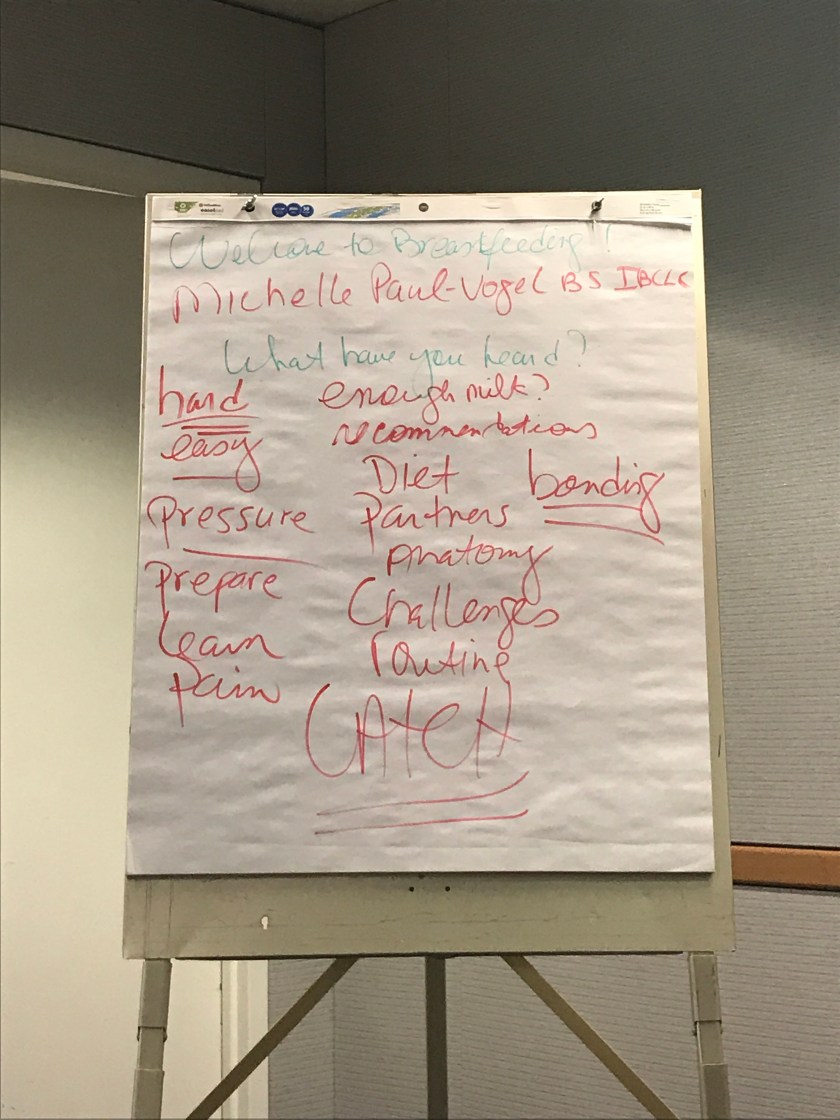 Welcome to Breastfeeding!
Michelle Paul-Vogel BS IBCLC
What have you heard?
hard
easy
Pressure
Prepare
Learn
Pain
enough milk?
recommendations
Diet
Partners
Anatomy
Challenges
routine
bonding
LATCH